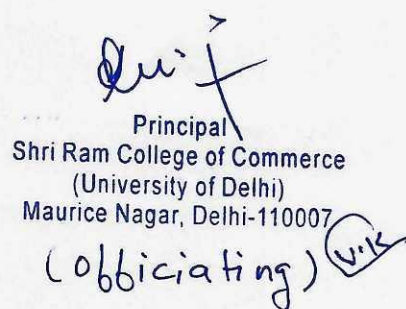 Principal
Shri Ram College of Commerce
(University of Delhi)
Maurice Nagar, Delhi-110007
(Officiating) V.K